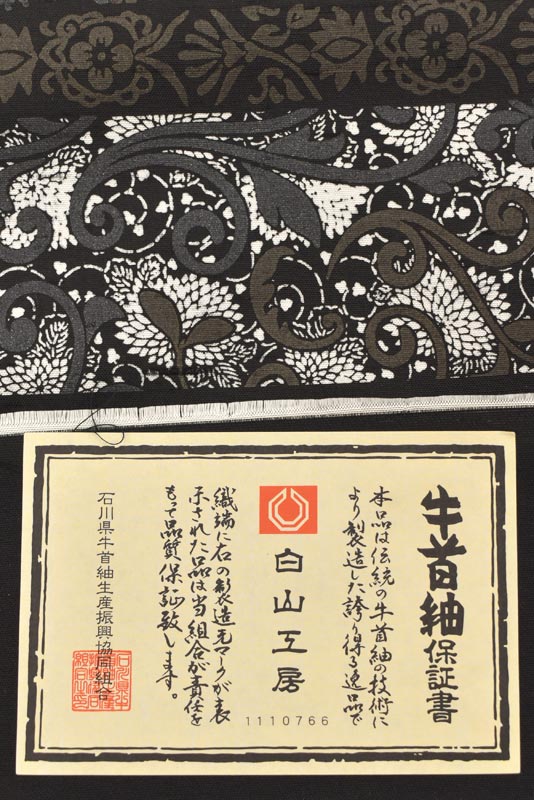 牛首紬保証書
本品は伝統の牛首紬の技術に
より製造した誇り得る逸品で
白山工房
1110766
織端に右の製造元マークが表
示された品は当組合が責任を
もって品質保証致します。
石川県牛首紬生産振興協同組合